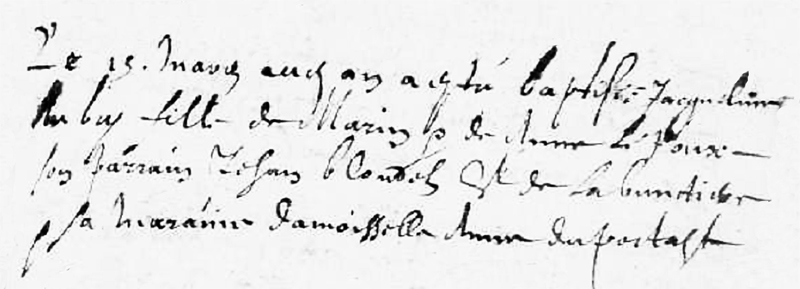 Le 15. Mars aud an a esté baptisée Jacqueline
Auby fille de Marin & de Anne Le Roux
son parrain Jehan Blondel Sr de La
& sa Maraine damoisselle Anne du